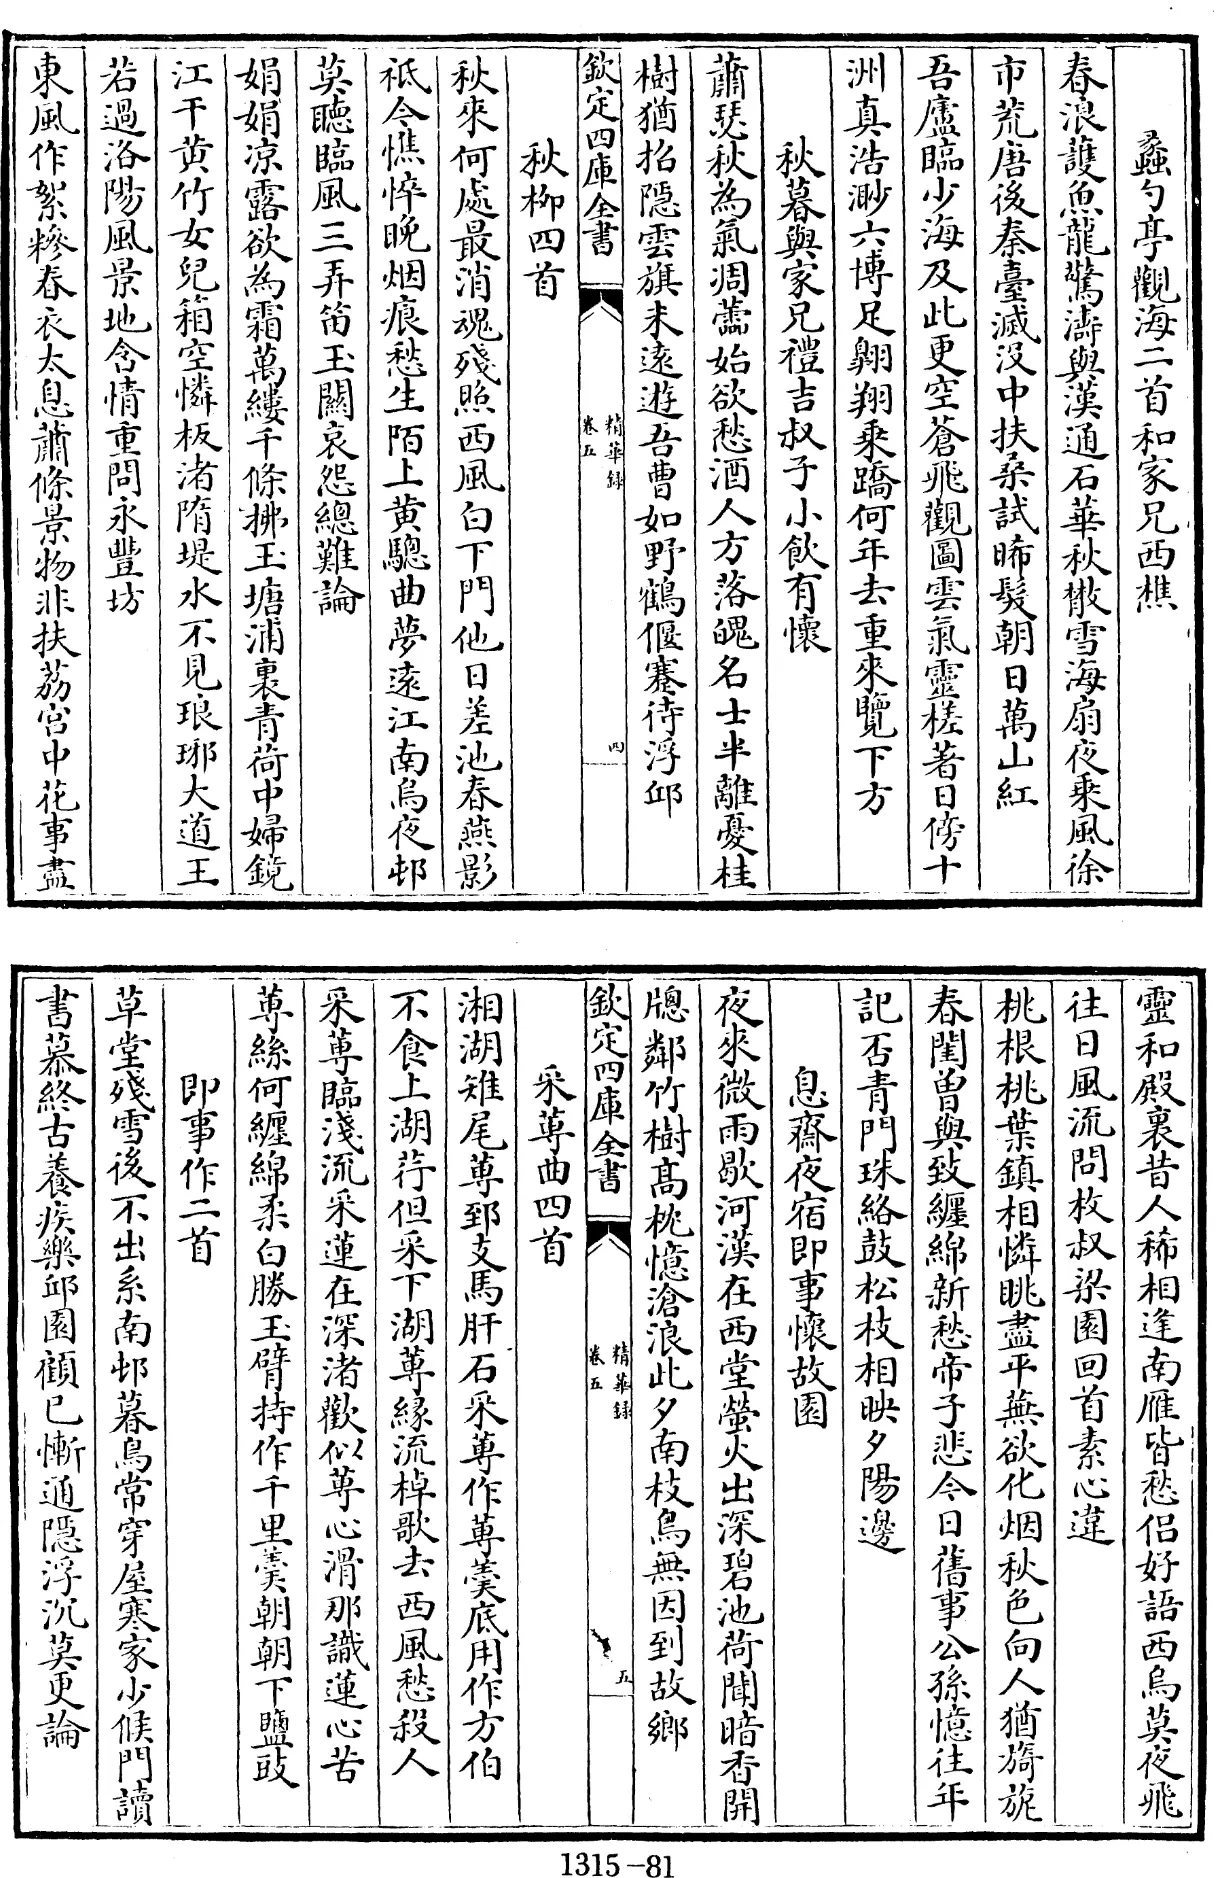 蠡勺亭觀海二首和家兄西樵
春浪護魚龍驚濤與漢通石華秋散雪海扇夜乘風徐
市荒唐後秦臺滅没中扶桑試晞髮朝日萬山紅
吾廬臨少海及此更空蒼飛觀圖雲氣靈槎著日傍十
洲真浩渺六博足翺翔乘蹻何年去重來覽下方
秋暮與家兄禮吉叔子小飲有懷
蕭瑟秋為氣凋蕭始欲愁酒人方落魄名士半離憂桂
樹猶招隱雲旗未遠遊吾曹如野鶴偃蹇待浮邱
欽定四庫全書
精華録
卷五
四
秋柳四首
秋來何處最消魂殘照西風白下門他日差池春燕影
祇今憔悴晩烟痕愁生陌上黄驄曲夢逺江南烏夜邨
莫聽臨風三弄笛玉關哀怨總難論
娟娟凉露欲為霜萬縷千條拂玉塘浦裏青荷中婦鏡
江干黄竹女兒箱空憐板渚隋堤水不見琅琊大道王
若過洛陽風景地含情重問永豐坊
東風作絮糝春衣太息蕭條景物非扶荔宫中花事盡
靈和殿裏昔人稀相逢南雁皆愁侣好語西烏莫夜飛
往日風流問枚叔梁園回首素心違
桃根桃葉鎮相憐眺盡平蕪欲化烟秋色向人猶旖旎
春閨曽與致纏綿新愁帝子悲今日舊事公孫憶往年
記否青門珠絡鼓松枝相映夕陽邊
息齋夜宿即事懷故園
夜來微雨歇河漢在西堂螢火出深碧池荷聞暗香開
牕鄰竹樹髙枕憶滄浪此夕南枝烏無因到故鄉
欽定四庫全書
精華録
卷五
五
采蓴曲四首
湘湖雉尾蓴郅支馬肝石采蓴作蓴羮底用作方伯
不食上湖荇但采下湖蓴緣流棹歌去西風愁殺人
采蓴臨淺流采蓮在深渚歡似蓴心滑那識蓮心苦
蓴絲何纒綿柔白勝玉臂持作千里羮朝朝下鹽豉
即事作二首
草堂殘雪後不出系南邨暮鳥常穿屋寒家少候門讀
書慕終古養疾樂邱園顧已慚通隠浮沉莫更論
1315-81